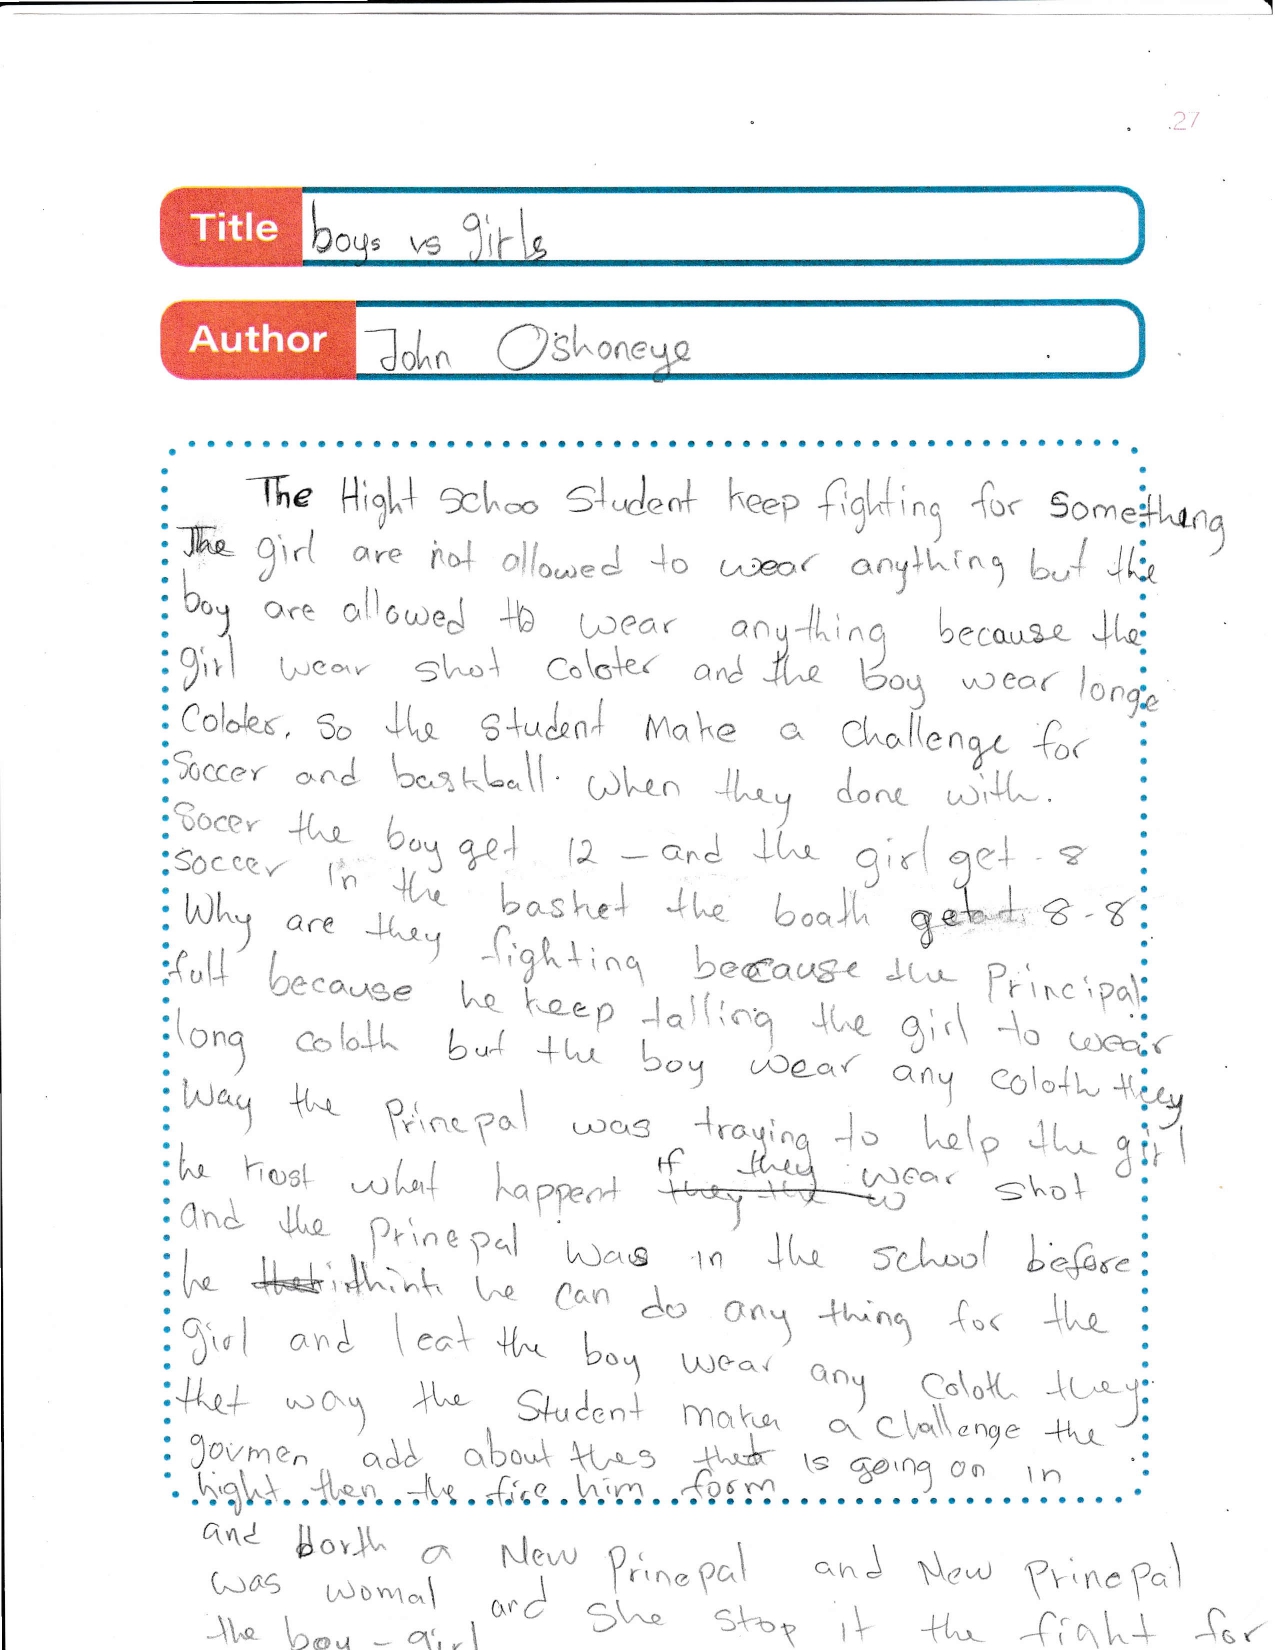 27
Title boys vs girls
Author John Oshoneye
The Hight schoo Student keep fighting for Something
The girl are not allowed to wear anything but the
boy are allowed to wear anything because the
girl wear shot coloter and the boy wear longe
Coloter. So the student make a challenge for
Soccer and baskball. when they done with.
Socer the boy get 12 - and the girl get - 8
soccer In the basket the boath get 8-8
Why are they fighting because the Principal
fult because he keep talling the girl to wear
long coloth but the boy wear any coloth they
Way the Prinepal was traying to help the girl
he what happent If they wear shot
and the Prinepal was in the school before
he think he can do any thing for the
girl and leat the boy wear any coloth they
thet way the Student maken a challenge the
govmen add about thes thet is going on in
hight then the fire him form
and borth a New Prinepal and New Prinepal
was womal and she stop it the fight for
the boy - girl